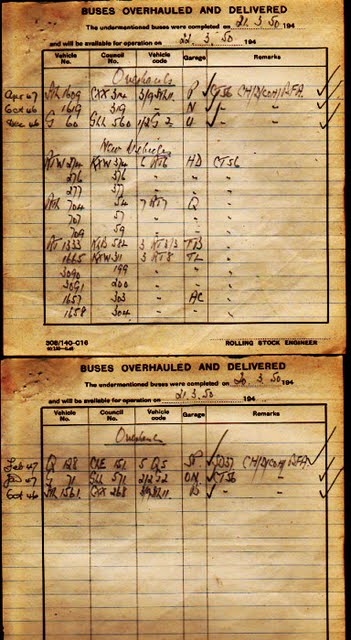 BUSES OVERHAULED AND DELIVERED
The undermentioned buses were completed on 21.3.50 194
and will be available for operation on 22.3.50 194
Vehicle No. Council No. Vehicle code Garage Remarks
Overhauls
1609 CXX P CT56 CH/D/COH/RFA
Oct 46 1619 319 " N " "
Dec 46 G 60 GLL 560 U " "
New Vehicles
KXW HD CT56
276 376 " " "
277 377 " " "
704 54 7 RT7 Q "
707 57 " " "
709 59 " " "
1333 3 RT8/3 "
1665 KXW 311 3 RT8 TL "
3090 199 " " "
3091 200 " " "
1657 303 " AC "
1658 304 " " "
308/140-C16 ROLLING STOCK ENGINEER
BUSES OVERHAULED AND DELIVERED
The undermentioned buses were completed on 20.3.50 194
and will be available for operation on 21.3.50 194
Vehicle No. Council No. Vehicle code Garage Remarks
Overhauls
Feb 47 Q 128 CLE 151 5 Q5 CH/D/COH/RFA
G 71 GLL 571 ON CT56 " "
Oct 46 1561 CXX 268 " "